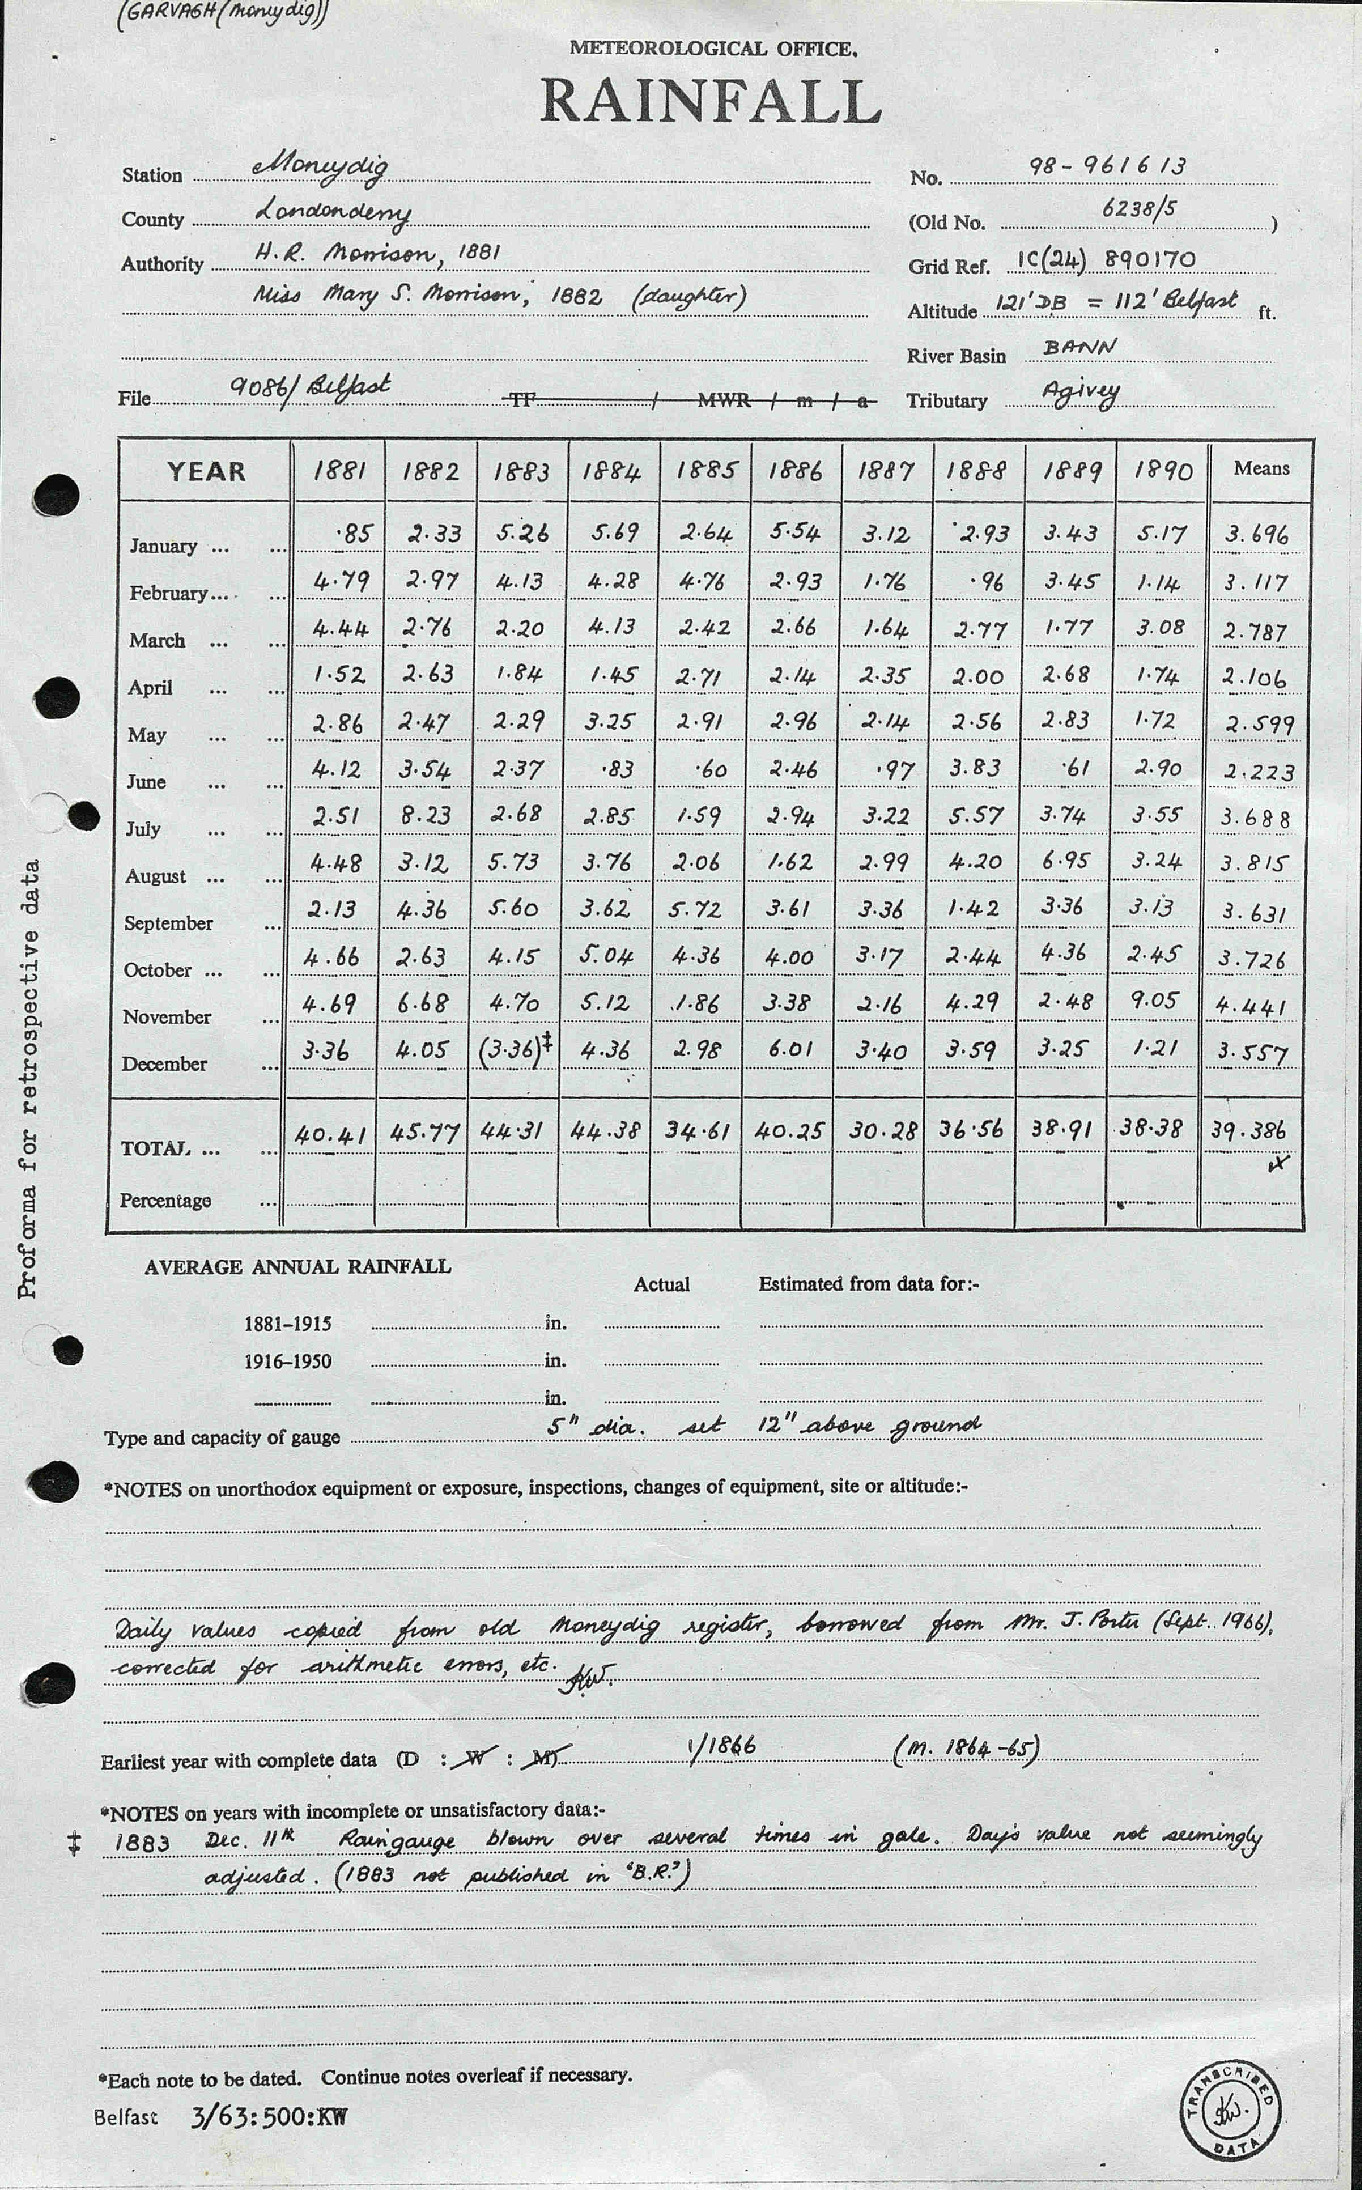 (GARVAGH (Moneydig))
METEOROLOGICAL OFFICE.
RAINFALL
Station Moneydig No. 98-961613
County Londonderry (Old No. 6238/5 )
Authority H.R. Morrison, 1881 Grid Ref. 1C(24) 890170
Miss Mary S. Morrison, 1882 (daughter) Altitude 121' DB = 112' Belfast ft.
River Basin BANN
File 9086/Belfast TF / MWR / m / a Tributary Agivey
YEAR 1881 1882 1883 1884 1885 1886 1887 1888 1889 1890 Means
January ... ... .85 2.33 5.26 5.69 2.64 5.54 3.12 2.93 3.43 5.17 3.696
February ... ... 4.79 2.97 4.13 4.28 4.76 2.93 1.76 .96 3.45 1.14 3.117
March ... ... 4.44 2.76 2.20 4.13 2.42 2.66 1.64 2.77 1.77 3.08 2.787
April ... ... 1.52 2.63 1.84 1.45 2.71 2.14 2.35 2.00 2.68 1.74 2.106
May ... ... 2.86 2.47 2.29 3.25 2.91 2.96 2.14 2.56 2.83 1.72 2.599
June ... ... 4.12 3.54 2.37 .83 .60 2.46 .97 3.83 .61 2.90 2.223
July ... ... 2.51 8.23 2.68 2.85 1.59 2.94 3.22 5.57 3.74 3.55 3.688
August ... ... 4.48 3.12 5.73 3.76 2.06 1.62 2.99 4.20 6.95 3.24 3.815
September ... 2.13 4.36 5.60 3.62 5.72 3.61 3.36 1.42 3.36 3.13 3.631
October ... ... 4.66 2.63 4.15 5.04 4.36 4.00 3.17 2.44 4.36 2.45 3.726
November ... 4.69 6.68 4.70 5.12 1.86 3.38 2.16 4.29 2.48 9.05 4.441
December ... 3.36 4.05 (3.36)‡ 4.36 2.98 6.01 3.40 3.59 3.25 1.21 3.557
TOTAL ... ... 40.41 45.77 44.31 44.38 34.61 40.25 30.28 36.56 38.91 38.38 39.386
Percentage ...
Proforma for retrospective data
AVERAGE ANNUAL RAINFALL
Actual Estimated from data for:-
1881-1915 in.
1916-1950 in.
in.
Type and capacity of gauge 5" dia. set 12" above ground
*NOTES on unorthodox equipment or exposure, inspections, changes of equipment, site or altitude:-
Daily values copied from old Moneydig register, borrowed from Mr. J. Porter (Sept. 1966),
corrected for arithmetic errors, etc. KW.
Earliest year with complete data (D : W : M) 1/1866 (M. 1864-65)
*NOTES on years with incomplete or unsatisfactory data:-
‡ 1883 Dec. 11th Raingauge blown over several times in gale. Day's value not seemingly
adjusted. (1883 not published in 'B.R.')
*Each note to be dated. Continue notes overleaf if necessary.
Belfast 3/63:500:KW
TRANSCRIBED
KW.
DATA